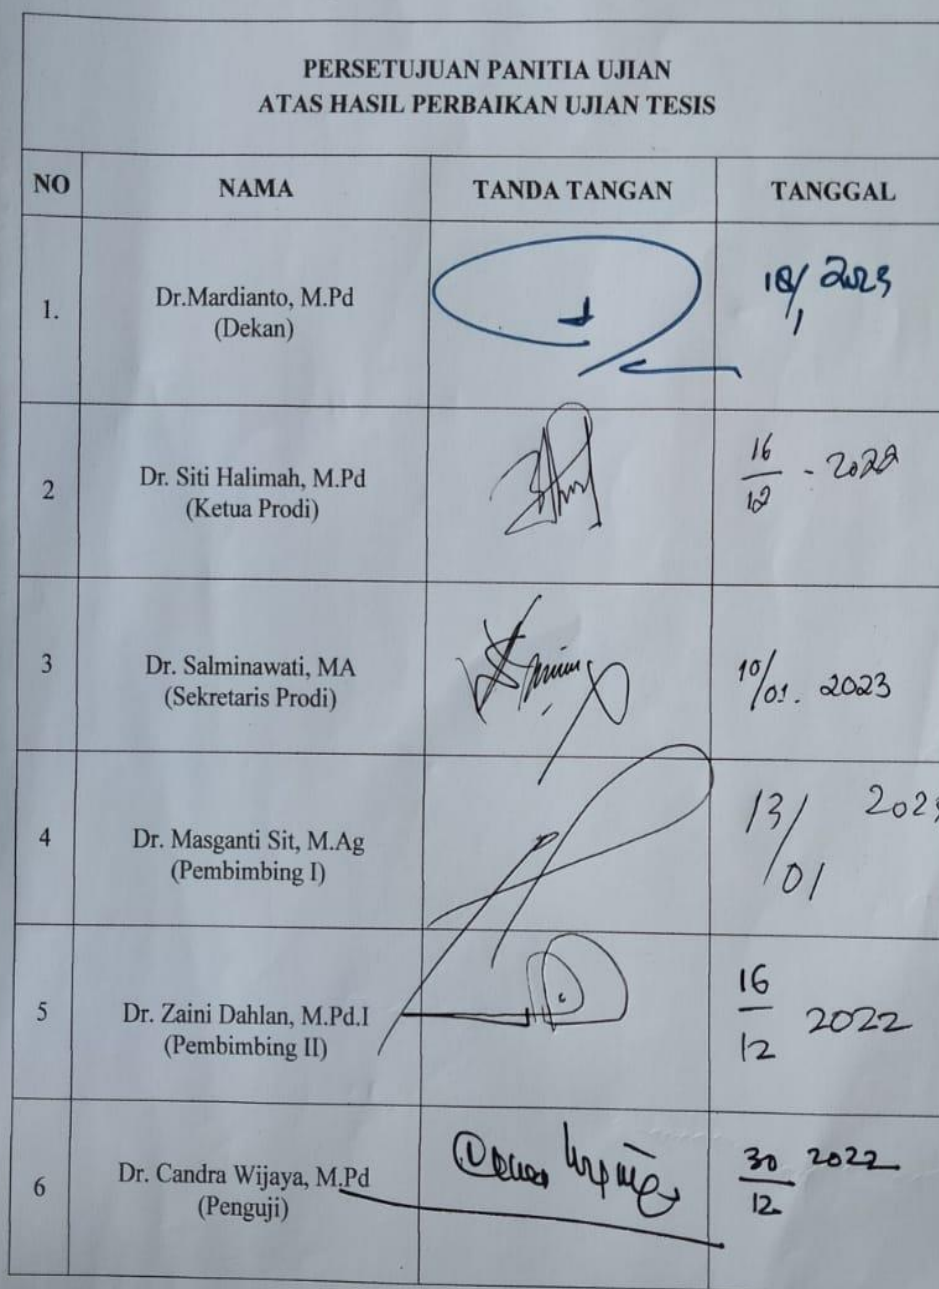 PERSETUJUAN PANITIA UJIAN
ATAS HASIL PERBAIKAN UJIAN TESIS
NO NAMA TANDA TANGAN TANGGAL
1. Dr.Mardianto, M.Pd
(Dekan)
2023
2 Dr. Siti Halimah, M.Pd
(Ketua Prodi)
16/12 - 2022
3 Dr. Salminawati, MA
(Sekretaris Prodi)
10/01. 2023
4 Dr. Masganti Sit, M.Ag
(Pembimbing I)
13/01
5 Dr. Zaini Dahlan, M.Pd.I
(Pembimbing II)
16/12 2022
6 Dr. Candra Wijaya, M.Pd
(Penguji)
30/12 2022